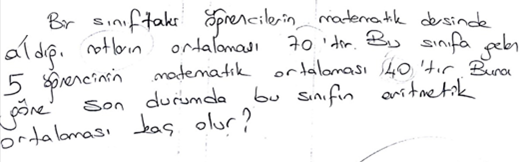 Bir sınıftaki öğrencilerin matematik dersinde
aldığı notların ortalaması 70'tir. Bu sınıfa gelen
5 öğrencinin matematik ortalaması 40'tır Buna
göre son durumda bu sınıfın aritmetik
ortalaması kaç olur?